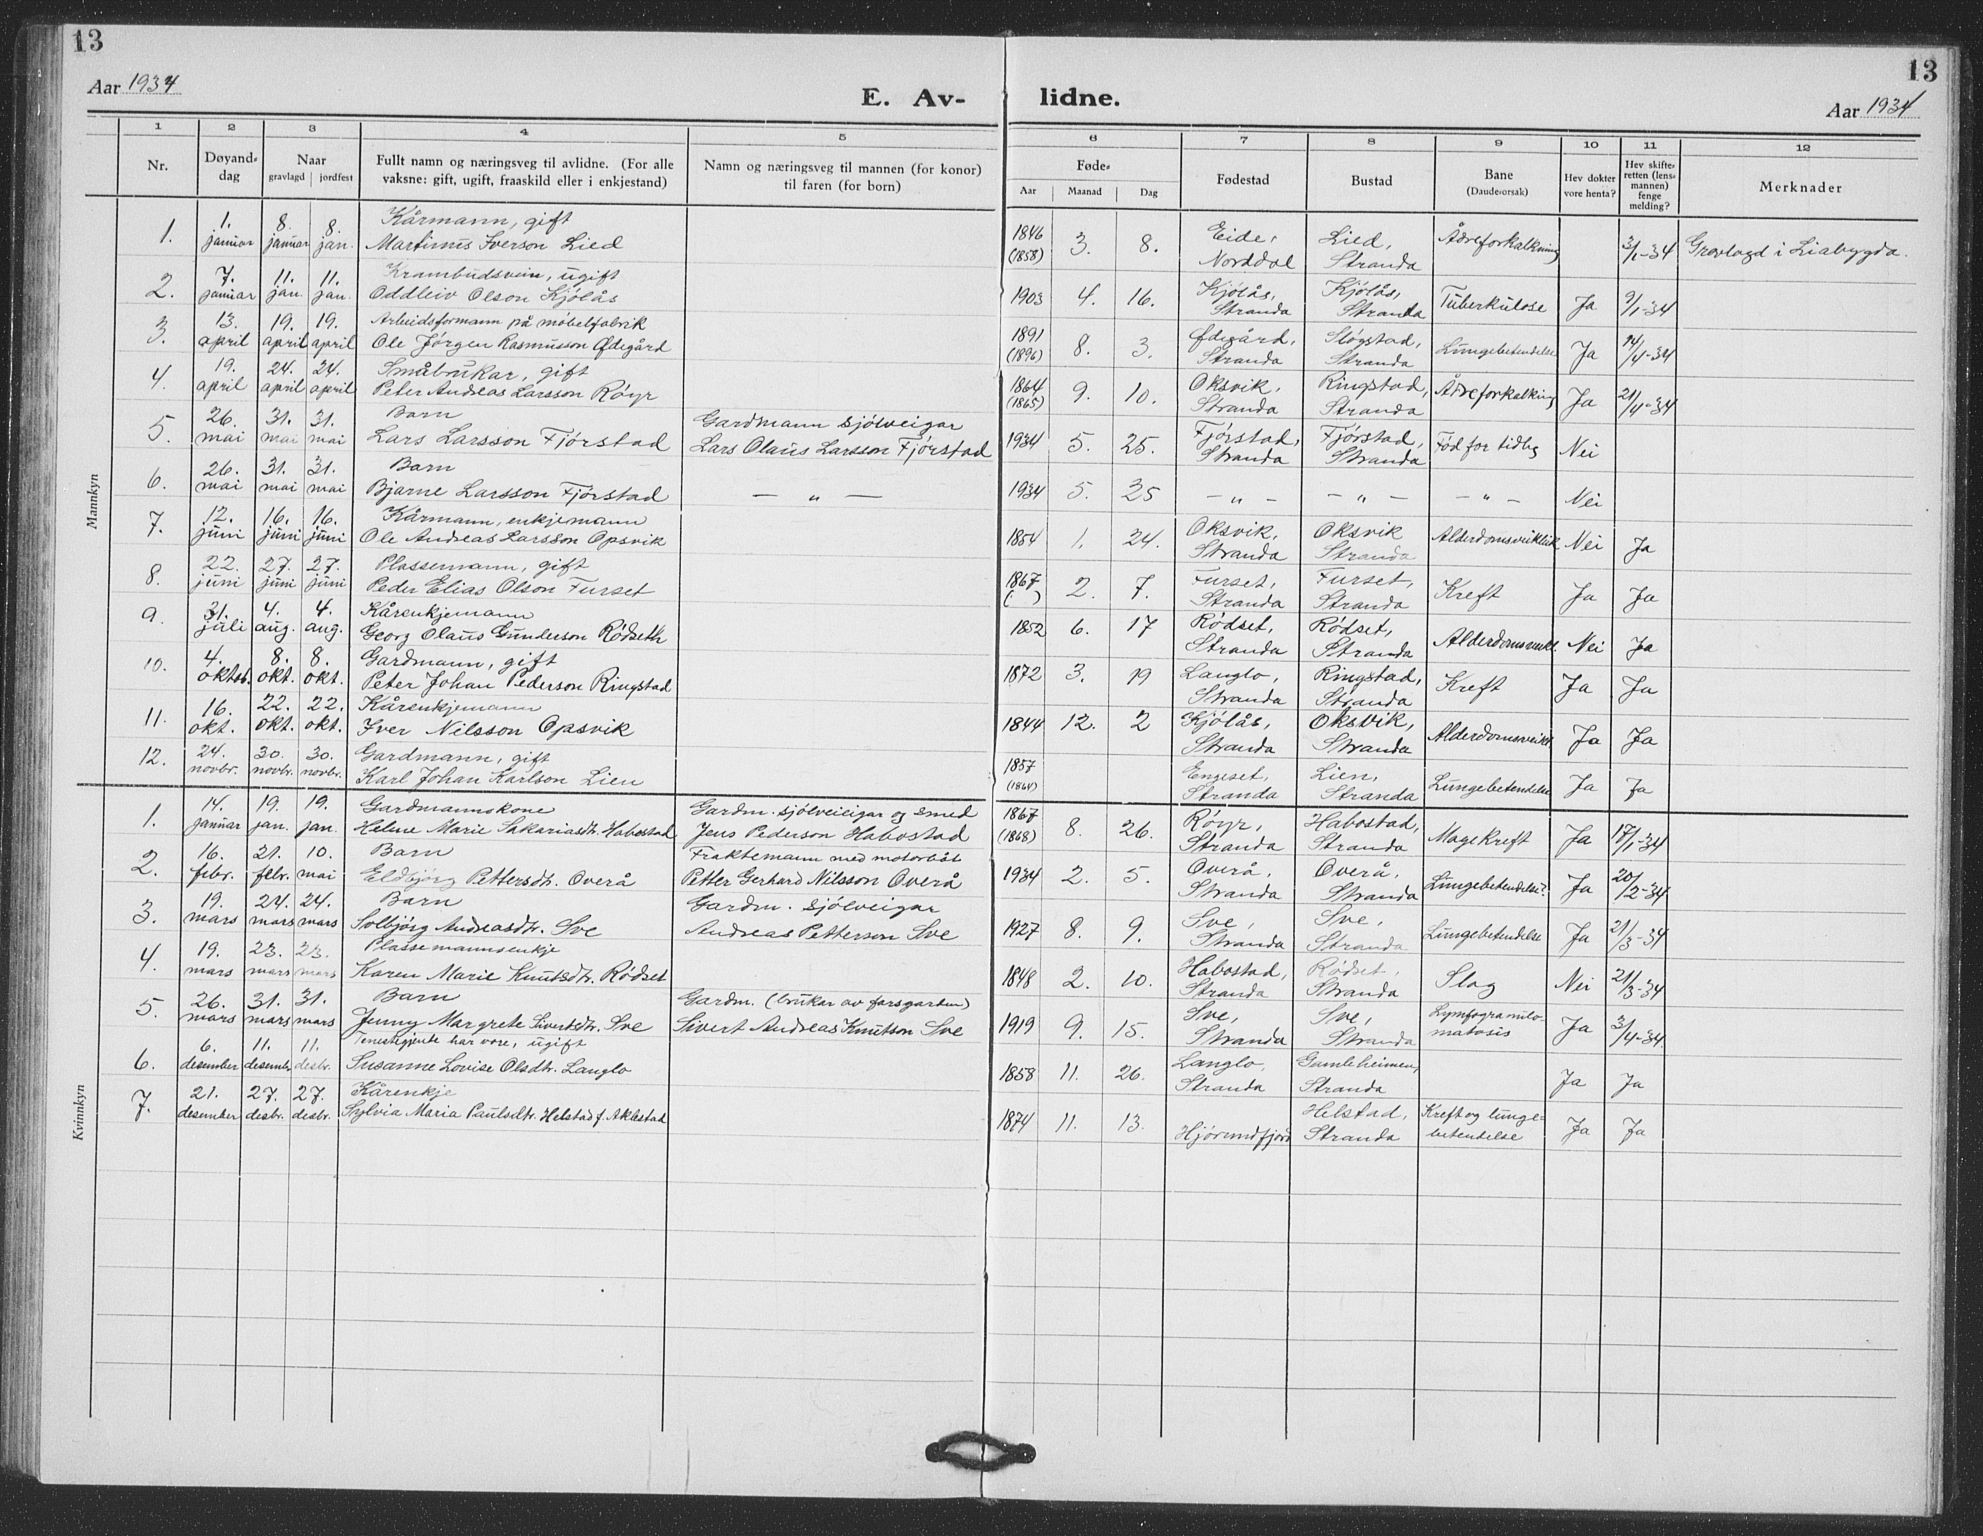 13
13
Aar 1934
E. Av- lidne.
Aar 1934
1 2 3 4 5 6 7 8 9 10 11 12
Nr.
Døyand-
dag
Naar
gravlagd jordfest
Fullt namn og næringsveg til avlidne. (For alle
vaksne: gift, ugift, fraaskild eller i enkjestand)
Namn og næringsveg til mannen (for konor)
til faren (for born)
Føde-
Aar Maanad Dag
Fødestad
Bustad
Bane
(Daude-orsak)
Hev dokter
vore henta?
Hev skifte-
retten (lens-
mannen)
fenge
melding?
Merknader
Mannkyn
1. 1. 8. 8. Kårmann, gift 1846 3. 8. Eide, Lied, Ådreforkalkning 3/1-34 Gravlagd i Liabygda.
januar januar jan. Martinus Iverson Lied (1858) Norddal Stranda
2. 7. 11. 11. Krambudsvein, ugift 1903 4. 16. Kjølås, Kjølås, Tuberkulose Ja 9/1-34
januar jan. jan. Oddleiv Olson Kjølås Stranda Stranda
3. 13. 19. 19. Arbeidsformann på møbelfabrik 1891 8. 3. Ødegård, Sløgstad, Lungebetendelse Ja 14/4-34
april april april Ole Jørgen Rasmusson Ødegård (1896) Stranda Stranda
4. 19. 24. 24. Småbrukar, gift 1864 9. 10. Oksvik, Ringstad, Ådreforkalkning Ja 21/4-34
april april april Peter Andreas Larsson Røyr (1865) Stranda Stranda
5. 26. 31. 31. Barn Gardmann sjølveigar 1934 5. 25. Fjørstad, Fjørstad, Fød for tidleg Nei
mai mai mai Lars Larsson Fjørstad Lars Olaus Larsson Fjørstad Stranda Stranda
6. 26 31. 31. Barn 1934 5. 25 — „ — — „ — — „ — Nei
mai mai mai Bjarne Larsson Fjørstad — „ —
7. 12. 16. 16. Kårmann, enkjemann 1854 1. 24. Oksvik, Oksvik Alderdomsveikleik Nei Ja
juni juni juni Ole Andreas Larsson Opsvik Stranda Stranda
8. 22. 27. 27. Plassemann, gift 1867 2. 7. Furset, Furset, Kreft Ja Ja
juni juni juni Peder Elias Olson Furset ( ) Stranda Stranda
9. 31. 4. 4. Kårenkjemann 1852 6. 17 Rødset, Rødset, Alderdomsveikl. Nei Ja
juli aug. aug. Georg Olaus Gunderson Rødseth Stranda Stranda
10. 4. 8. 8. Gardmann, gift 1872 3. 19 Langlo, Ringstad, Kreft Ja Ja
oktob. okt. okt. Peter Johan Pederson Ringstad Stranda Stranda
11. 16. 22. 22. Kårenkjemann 1844 12. 2 Kjølås, Oksvik, Alderdomsveikl. Ja Ja
okt. okt. okt. Iver Nilsson Opsvik Stranda Stranda
12. 24. 30. 30. Gardmann, gift 1857 Engeset, Lien, Lungebetendelse Ja Ja
novbr. novbr. novbr. Karl Johan Karlson Lien (1864) Stranda Stranda
Kvinnkyn
1. 14. 19. 19. Gardmannskone Gardm. sjølveieigar og smed 1867 8. 26. Røyr, Habostad, Magekreft Ja 17/1-34
januar jan. jan. Helene Marie Sakariasdtr. Habostad Jens Pederson Habostad (1868) Stranda Stranda
2. 16. 21. 10. Barn Fraktemann med motorbåt 1934 2. 5. Overå, Overå, Lungebetendelse? Ja 20/2-34
febr. febr. mai Eldbjørg Pettersdtr. Overå Petter Gerhard Nilsson Overå Stranda Stranda
3. 19. 24. 24. Barn Gardm. sjølveigar 1927 8. 9. Sve, Sve, Lungebetendelse Ja 21/3-34
mars mars mars Solbjørg Andreasdtr. Sve Andreas Petterson Sve Stranda Stranda
4. 19. 23. 23. Plassemannsenkje 1848 2. 10. Habostad, Rødset, Slag Nei 21/3-34
mars mars mars Karen Marie Knutsdtr. Rødset Stranda Stranda
5. 26. 31. 31. Barn Gardm. (brukar av farsgarden) 1919 9. 15. Sve, Sve, Lymfogranulo- Ja 3/4-34
mars mars mars Jenny Margrete Sivertsdtr. Sve Sivert Andreas Knutson Sve Stranda Stranda matosis
6. 6. 11. 11. Tenestgjente har vore, ugift 1858 11. 26. Langlo, Gamleheimen, Ja Ja
desember desember desbr. Susanne Lovise Olsdtr. Langlo Stranda Stranda
7. 21. 27. 27. Kårenkje 1874 11. 13. Hjørundfjord Helstad, Kreft og lunge- Ja Ja
desember desbr. desbr. Sylvia Maria Paulsdtr. Helstad f. Aklestad Stranda betendelse